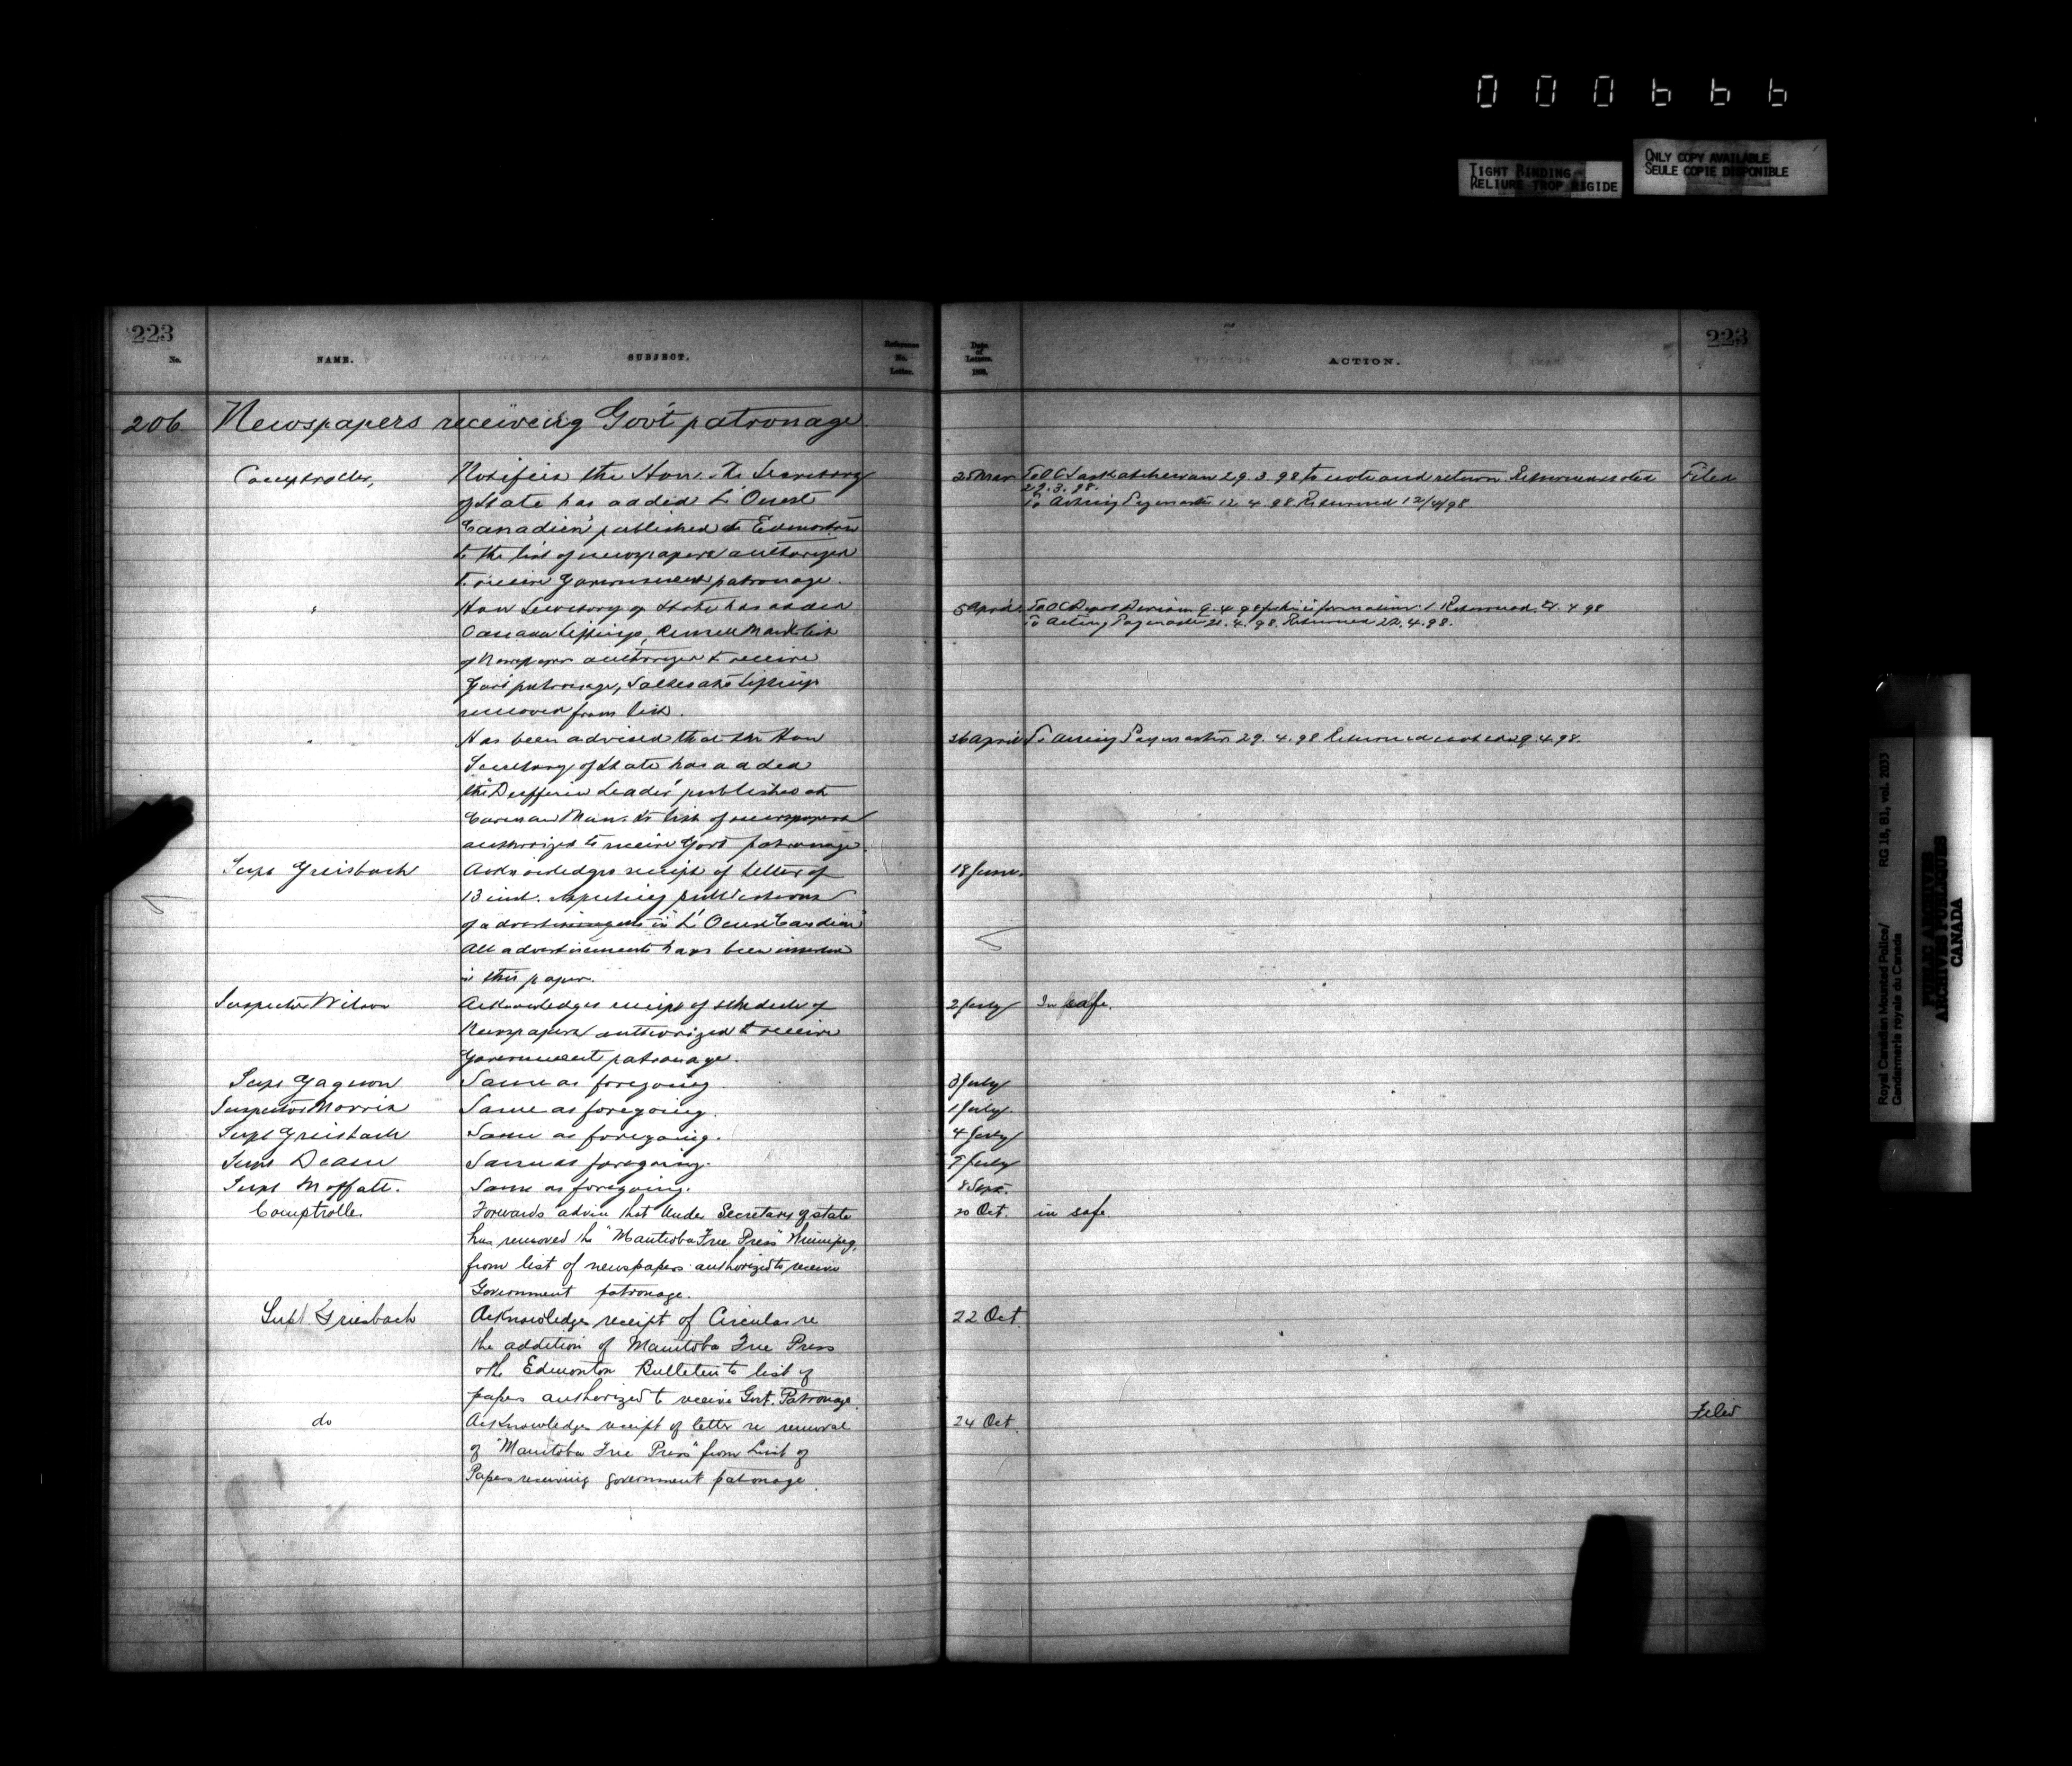 000666
TIGHT BINDING
RELIURE TROP RIGIDE
ONLY COPY AVAILABLE
SEULE COPIE DISPONIBLE
223
No.
NAME.
SUBJECT.
Reference No. Letter.
Date of Letters.
ACTION.
223
206 Newspapers receiving Gov't patronage
Comptroller,
Notifies the Hon. the Secretary
of State has added L'Ouest
Canadien published at Edmonton
to the list of newspapers authorized
to receive Government patronage.
25 Mar
To OC Saskatchewan 29.3.98 to note and return. Returned noted
29.3.98.
To Acting Paymaster 12.4.98. Returned 12/4/98.
Filed
"
Hon Secretary of State has added
Russell Man to list
of Newspapers authorized to receive
Govt patronage,
removed from list.
5 April
To OC Depot Division 9.4.98 for his information. Returned 21.4.98
To Acting Paymaster 21.4.98. Returned 22.4.98.
"
Has been advised that the Hon
Secretary of State has added
the "Dufferin Leader" published at
Carman Man. to list of newspapers
authorized to receive Govt patronage.
26 April
To Acting Paymaster 29.4.98. Returned noted 29.4.98.
Supt Griesbach
Acknowledges receipt of letter of
13 inst. respecting publications
of advertisements in "L'Ouest Candien"
All advertisements have been inserted
in this paper.
18 June.
Inspector Wilson
Acknowledges receipt of schedule of
Newspapers authorized to receive
Government patronage.
2 July
In safe.
Supt Gagnon
Same as foregoing.
3 July
Inspector Morris
Same as foregoing.
1 July.
Supt Griesbach
Same as foregoing.
4 July
Supt Deane
Same as foregoing.
July
Supt Moffatt.
Same as foregoing.
8 Sept.
Comptroller
Forwards advice that Under Secretary of state
has removed the "Manitoba Free Press" Winnipeg,
from list of newspapers authorized to receive
Government patronage.
20 Oct.
in safe.
Supt Griesbach
Acknowledges receipt of Circular re
the addition of Manitoba Free Press
& the Edmonton Bulletin to list of
papers authorized to receive Govt. Patronage.
22 Oct.
do
Acknowledges receipt of letter re removal
of "Manitoba Free Press" from List of
Papers receiving government patronage.
24 Oct.
Filed
Royal Canadian Mounted Police/ RG 18, B1, vol. 2033
Gendarmerie royale du Canada
PUBLIC ARCHIVES
ARCHIVES PUBLIQUES
CANADA